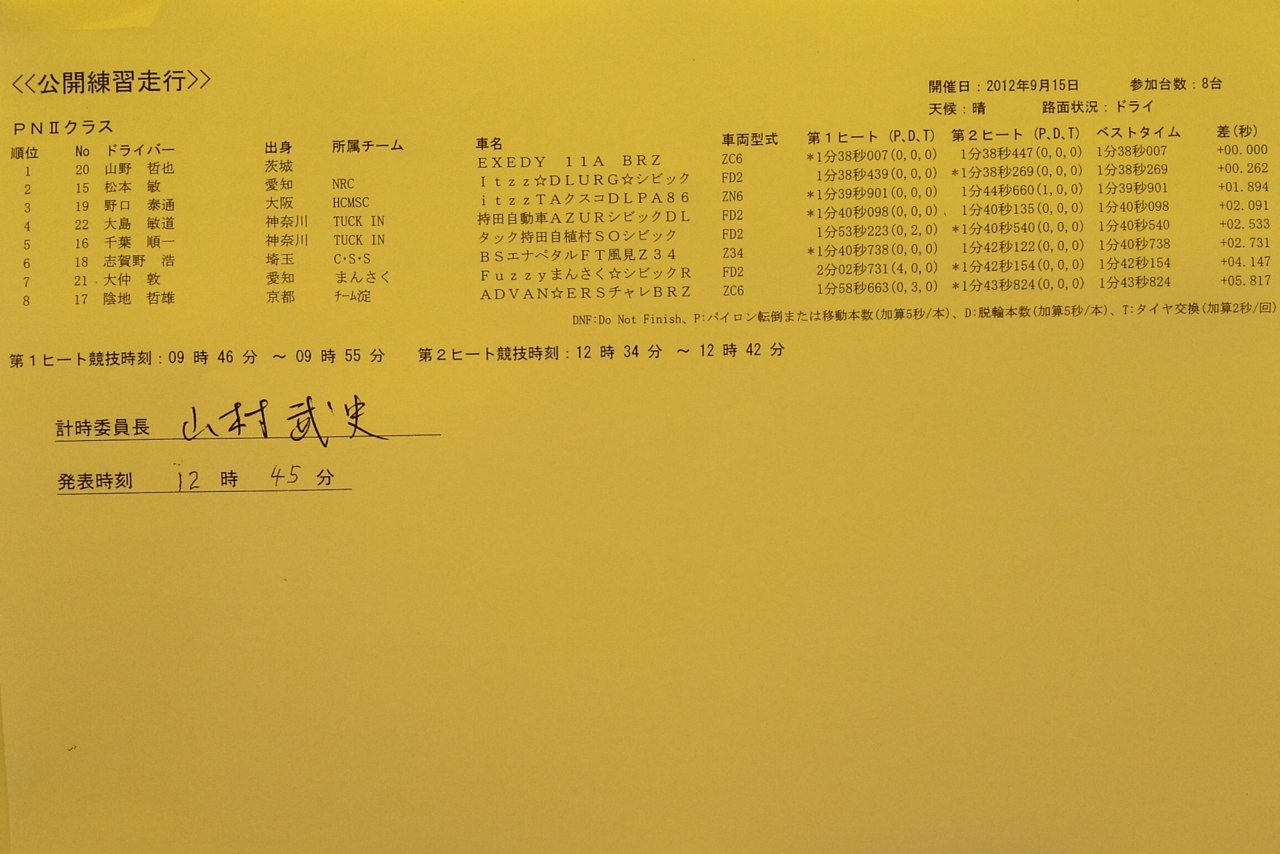 <<公開練習走行>>
開催日：2012年9月15日 参加台数：8台
天候：晴 路面状況：ドライ
ＰＮⅡクラス
順位 No ドライバー 出身 所属チーム 車名 車両型式 第１ヒート (P,D,T) 第２ヒート (P,D,T) ベストタイム 差(秒)
1 20 山野 哲也 茨城 ＥＸＥＤＹ １１Ａ ＢＲＺ ZC6 *1分38秒007(0,0,0) 1分38秒447(0,0,0) 1分38秒007 +00.000
2 15 松本 敏 愛知 NRC Ｉｔｚｚ☆ＤＬＵＲＧ☆シビック FD2 1分38秒439(0,0,0) *1分38秒269(0,0,0) 1分38秒269 +00.262
3 19 野口 泰通 大阪 HCMSC ｉｔｚｚＴＡクスコＤＬＰＡ８６ ZN6 *1分39秒901(0,0,0) 1分44秒660(1,0,0) 1分39秒901 +01.894
4 22 大島 敏道 神奈川 TUCK IN 持田自動車ＡＺＵＲシビックＤＬ FD2 *1分40秒098(0,0,0) 1分40秒135(0,0,0) 1分40秒098 +02.091
5 16 千葉 順一 神奈川 TUCK IN タック持田自植村ＳＯシビック FD2 1分53秒223(0,2,0) *1分40秒540(0,0,0) 1分40秒540 +02.533
6 18 志賀野 浩 埼玉 C･S･S ＢＳエナペタルＦＴ風見Ｚ３４ Z34 *1分40秒738(0,0,0) 1分42秒122(0,0,0) 1分40秒738 +02.731
7 21 大仲 敦 愛知 まんさく Ｆｕｚｚｙまんさく☆シビックＲ FD2 2分02秒731(4,0,0) *1分42秒154(0,0,0) 1分42秒154 +04.147
8 17 陰地 哲雄 京都 ﾁｰﾑ淀 ＡＤＶＡＮ☆ＥＲＳチャレＢＲＺ ZC6 1分58秒663(0,3,0) *1分43秒824(0,0,0) 1分43秒824 +05.817
DNF:Do Not Finish、P:パイロン転倒または移動本数(加算5秒/本)、D:脱輪本数(加算5秒/本)、T:タイヤ交換(加算2秒/回)
第１ヒート競技時刻：09 時 46 分 ～ 09 時 55 分 第２ヒート競技時刻：12 時 34 分 ～ 12 時 42 分
計時委員長 山村 武史
発表時刻 12 時 45 分